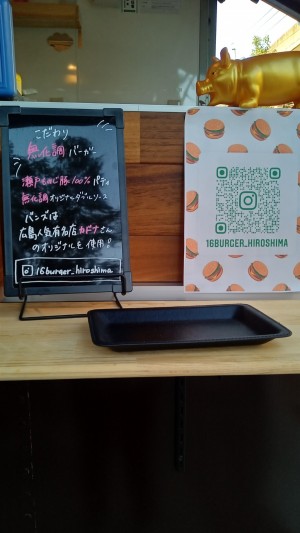 こだわり
無化調バーガー
瀬戸もみじ豚100%パティ
無化調オリジナルダブルソース
バンズは
広島人気有名店カドナさん
のオリジナルを使用!
16burger_hiroshima
16BURGER_HIROSHIMA